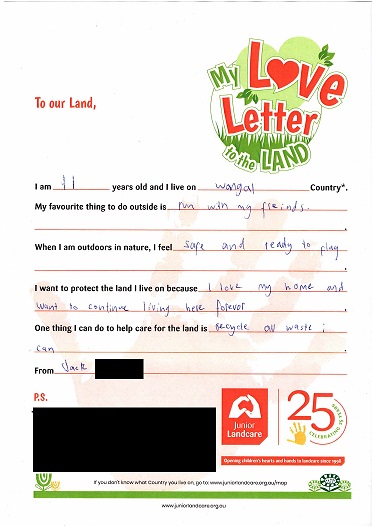 My Love
Letter
to the LAND
To our Land,
I am 11 years old and I live on wangal Country*.
My favourite thing to do outside is run with my freinds.
When I am outdoors in nature, I feel safe and ready to play
I want to protect the land I live on because I love my home and
want to continue living here forever
One thing I can do to help care for the land is recycle all waste i
can
From Jack
P.S.
Junior
Landcare
25 YEARS
CELEBRATING
Opening children's hearts and hands to landcare since 1998.
If you don't know what Country you live on, go to: www.juniorlandcare.org.au/map
www.juniorlandcare.org.au